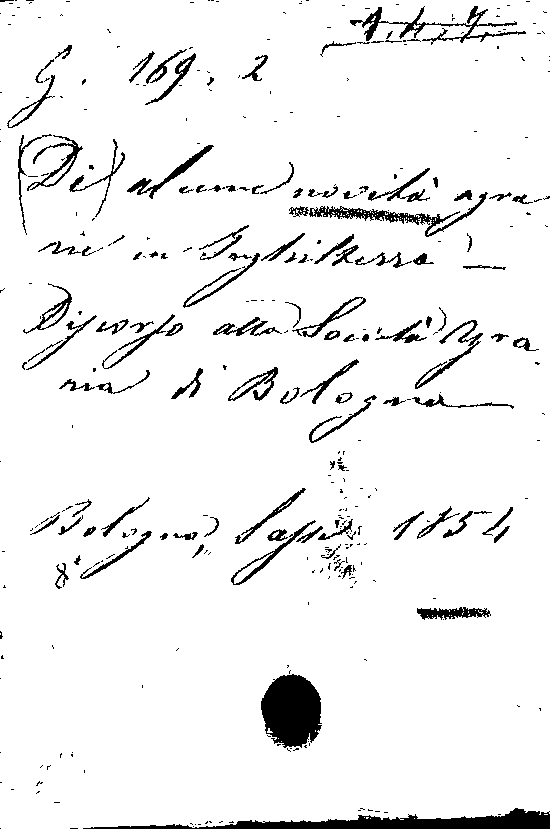 1. 4. 7.
G. 169. 2
(Di) alcune novità agra
rie in Inghilterra —
Discorso alla Società Agra
ria di Bologna —
Bologna, Sassi 1854
8°